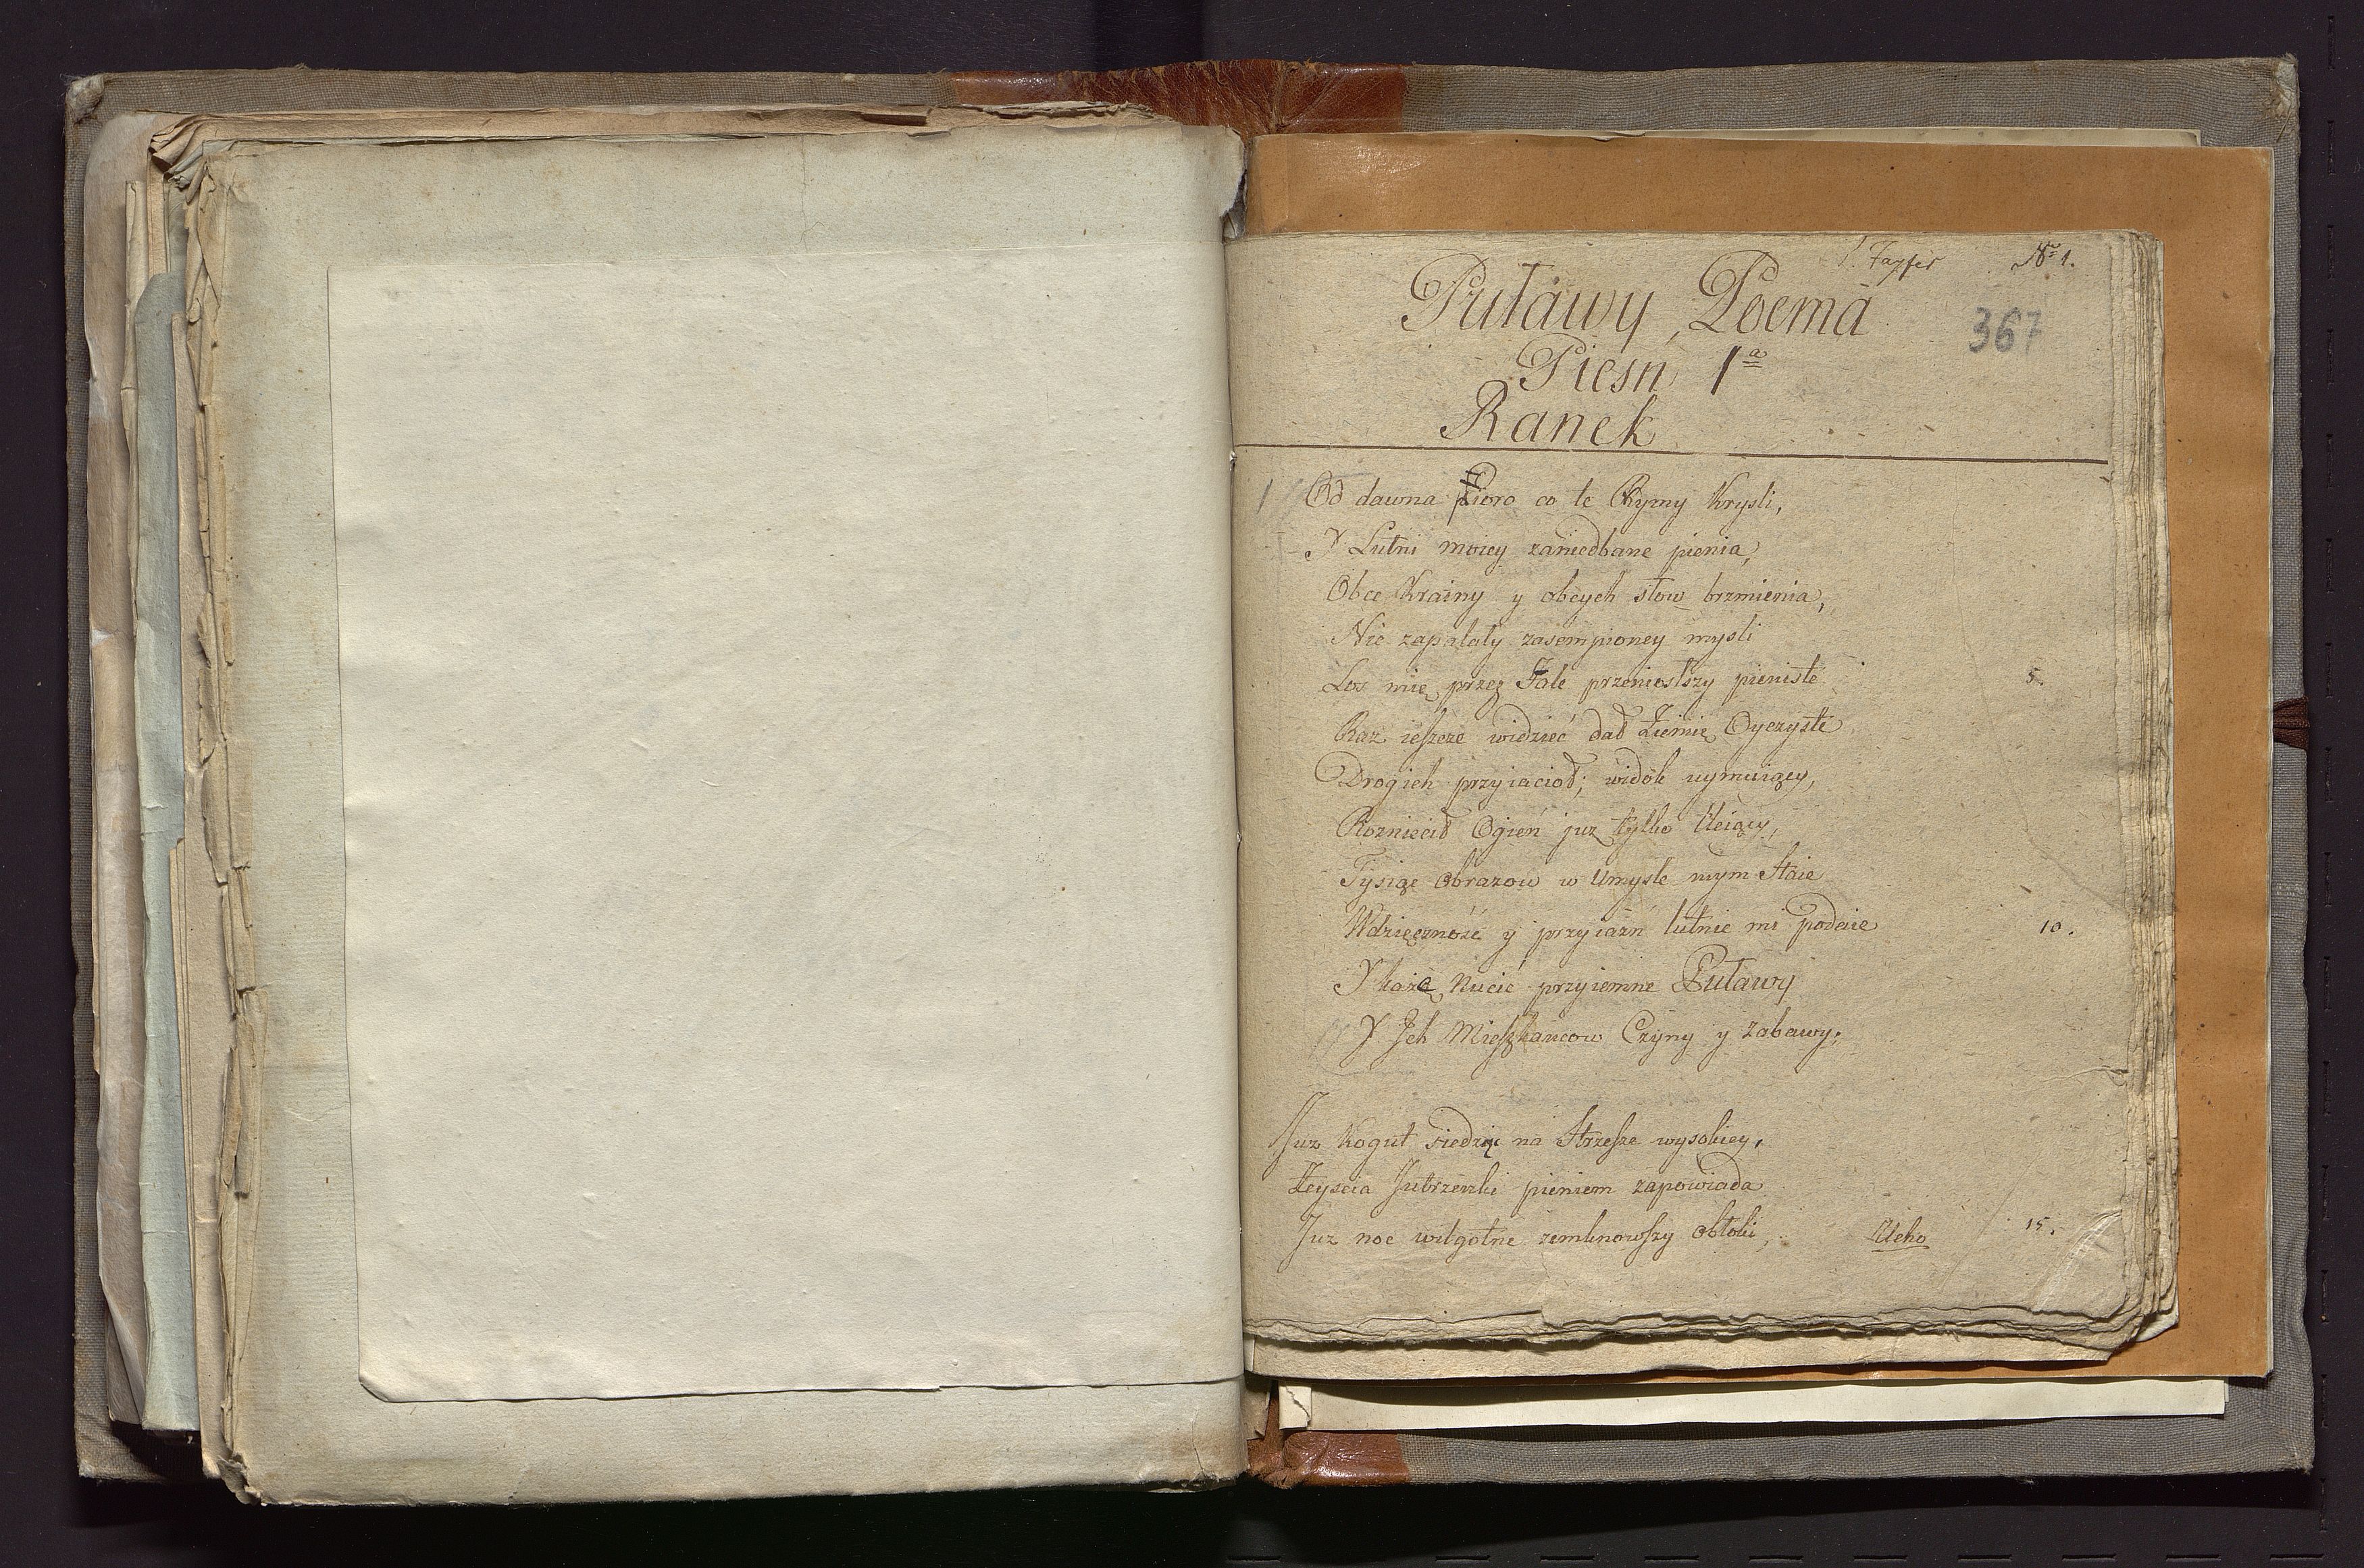 No 1.
Puławy, Poema
367
Pieśń 1a
Ranek
1 Od dawna Pioro co te Rymy Krysli,
Y Lutni moiey zaniedbane pienia,
Obce Krainy y obcych słow brzmienia,
Nie zapalały zasempioney mysli
Los mię przez Fale przeniosłszy pieniste 5.
Raz ieszcze widzieć dał Ziemię Oyczyste
Drogich przyiacioł; widok uymuiący,
Rozniecił Ogień juz tylko tleiący,
Tysiąc Obrazow w Umysle mym staie
Wdzięczność y przyiazń lutnie mi podaie 10.
Y każą Nucić przyiemne Puławy
Y Jch Mieszkancow Czyny y zabawy;
Juz Kogut siedząc na Strzesze wysokiey,
Zeyscia Jutrzenki pieniem zapowiada
Juz noc wilgotne zemknowszy obłoki, 15.
Ucho